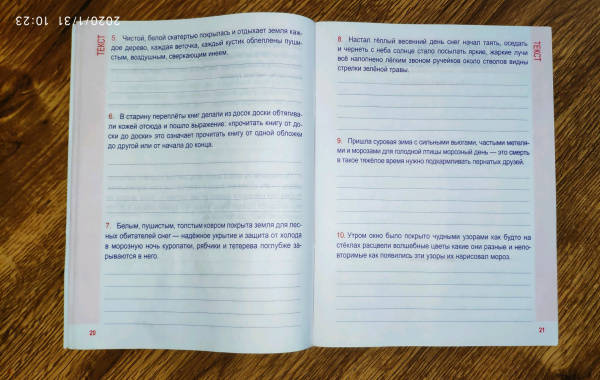 2020/1/31 10:23
ТЕКСТ
5. Чистой, белой скатертью покрылась и отдыхает земля каж-
дое дерево, каждая веточка, каждый кустик облеплены пуши-
стым, воздушным, сверкающим инеем.
6. В старину переплёты книг делали из досок доски обтягива-
ли кожей отсюда и пошло выражение: «прочитать книгу от до-
ски до доски» это означает прочитать книгу от одной обложки
до другой или от начала до конца.
7. Белым, пушистым, толстым ковром покрыта земля для лес-
ных обитателей снег — надёжное укрытие и защита от холода
в морозную ночь куропатки, рябчики и тетерева поглубже за-
рываются в него.
20
ТЕКСТ
8. Настал тёплый весенний день снег начал таять, оседать
и чернеть с неба солнце стало посылать яркие, жаркие лучи
всё наполнено лёгким звоном ручейков около стволов видны
стрелки зелёной травы.
9. Пришла суровая зима с сильными вьюгами, частыми метеля-
ми и морозами для голодной птицы морозный день — это смерть
в такое тяжёлое время нужно подкармливать пернатых друзей.
10. Утром окно было покрыто чудными узорами как будто на
стёклах расцвели волшебные цветы какие они разные и непо-
вторимые как появились эти узоры их нарисовал мороз.
21